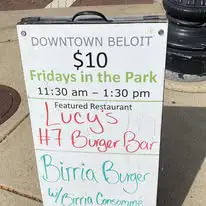 DOWNTOWN BELOIT
$10
Fridays in the Park
11:30 am – 1:30 pm
Featured Restaurant
Lucy's
#7 Burger Bar
Birria Burger
w/ Birria Consommé